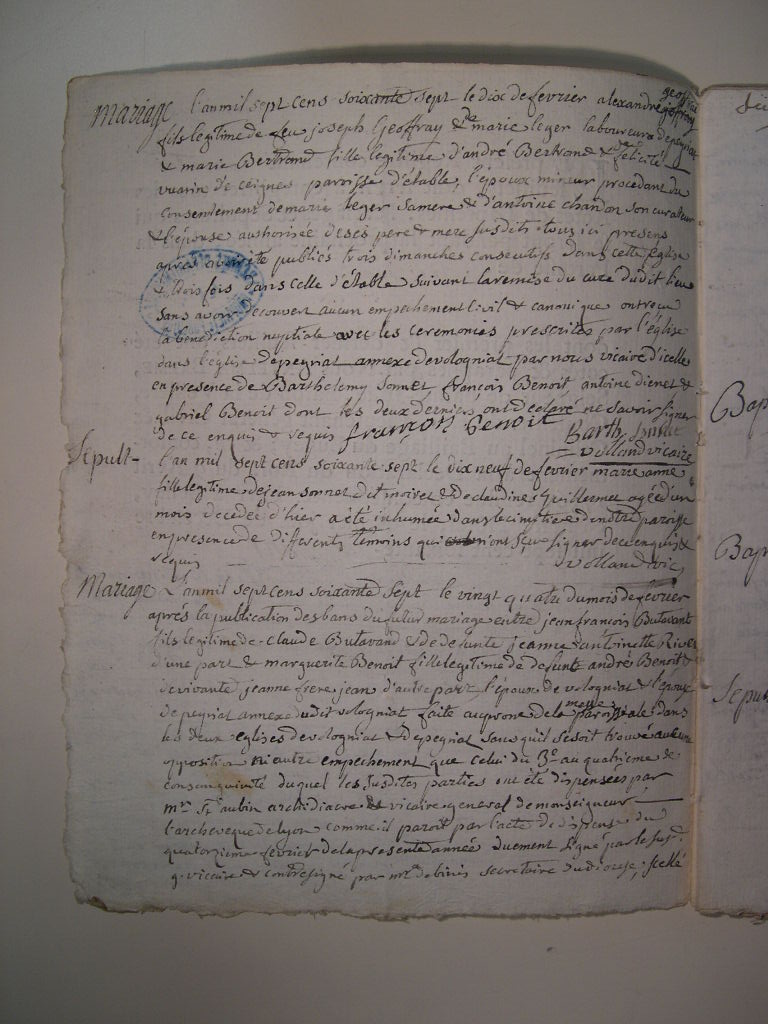 Mariage l'an mil sept cens soixante sept le dix de fevrier alexandre geoffray
fils legitime de feu joseph Geoffray & de marie leger laboureurs de peyriat
& marie Bertrand fille legitime d'andré Bertrand & de felicité
vuarin de ceignes parroisse d'étable, l'époux mineur procedant du
consentement de marie leger sa mere & d'antoine chandon son curateur
& l'épouse authorisée de ses pere & mere susdits tous ici presens
après avoir été publiés trois dimanches consecutifs dans cette église
& trois fois dans celle d'étable suivant la remise du curé dudit lieu
sans avoir decouvert aucun empechement civil & canonique ont reçu
la benediction nuptiale avec les ceremonies prescrites par l'église
dans l'église de peyriat annexe de volognat par nous vicaire d'icelle
en presence de Barthelemy sonnet françois Benoit antoine &
gabriel Benoit dont les deux derniers ont declaré ne savoir signer
de ce enquis & requis françois benoit Barth. sonnet
volland vicaire
Sepult- l'an mil sept cens soixante sept le dix neuf de fevrier marie anne
fille legitime de jean sonnet dit & de claudine Guillermet agée d'un
mois decedée d'hier a été inhumée dans le cimetiere de notre paroisse
en presence de differents temoins qui n'ont sçu signer de ce enquis &
requis volland vic.
Mariage L'an mil sept cens soixante sept le vingt quatre du mois de fevrier
après la publication des bans du futur mariage entre jean françois Butavant
fils legitime de claude Butavand & de defunte jeanne antoinette Rives
d'une part & marguerite Benoit fille legitime de defunt andré Benoit &
de vivante jeanne frere jean d'autre part l'époux de volognat & l'épouse
de peyriat annexe dudit volognat faite au prone de la messe paroissiale dans
les deux eglises de volognat & de peyriat sans qu'il se soit trouvé aucune
opposition ni autre empechement que celui du 3e au quatrieme de
consanguinité duquel les susdites parties ont été dispensées par
mr. St. aubin archidiacre & vicaire general de monseigneur
l'archeveque de lyon comme il paroit par l'acte de dispense du
quatorzieme fevrier de la presente année duement signé par le susdt.
g. vicaire & contresigné par mr. secretaire du diocese, scellé